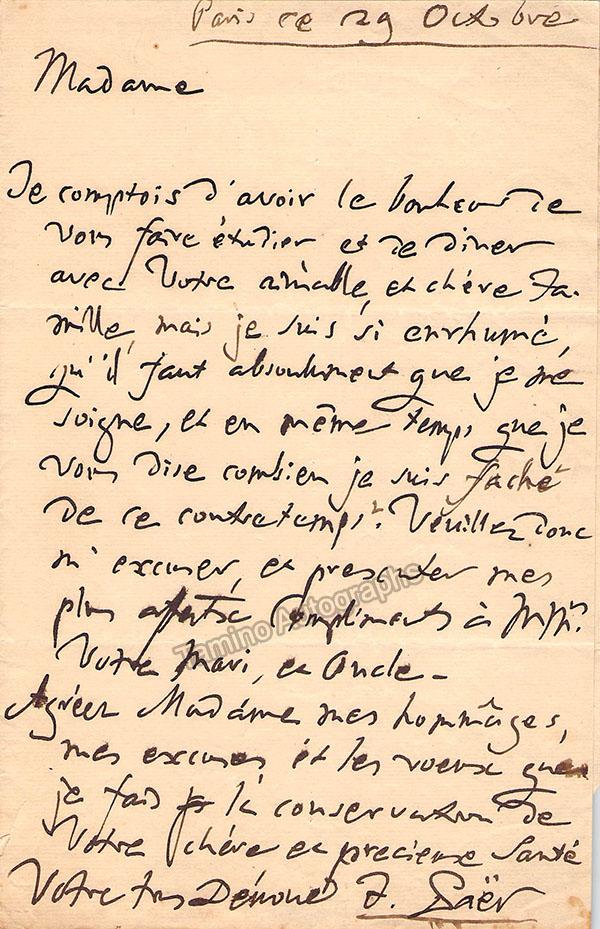 Paris ce 29 Octobre
Madame
Je comptois d'avoir le bonheur de
vous faire étudier et de diner
avec Votre aimable, et chére fa-
mille, mais je suis si enrhumé,
qu'il faut absolument que je me
soigne, et en même temps que je
vous dise combien je suis faché
de ce contretemps. Veuillez donc
m'excuser, et presenter mes
plus Compliments à
Votre Mari, et Oncle -
Agréez Madame mes hommâges,
mes excuses et les voeux que
je fais pr la conservation de
Votre chére et precieuse Santé
Votre tres Dévoué F. Paër
Tamino Autographs